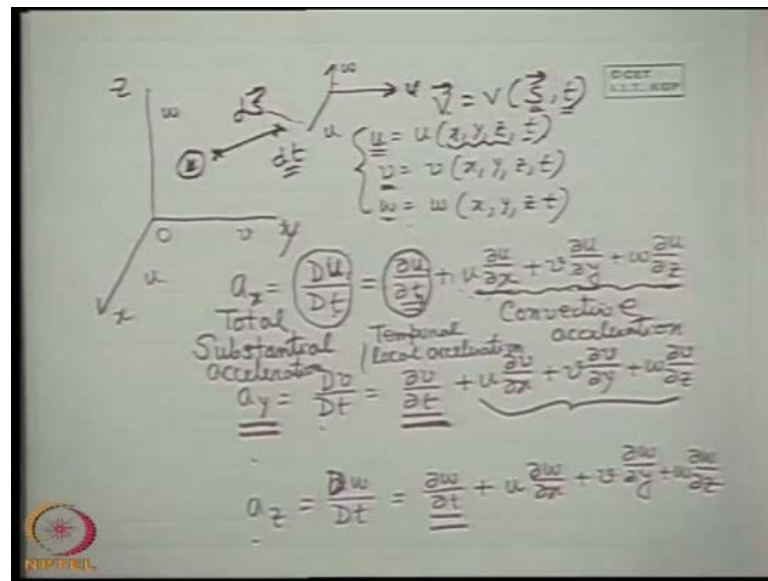 z
w
dS
dt
w
u
u
V⃗ = V(S⃗, t)
© CET
I.I.T. KGP
u = u(x, y, z, t)
v = v(x, y, z, t)
w = w(x, y, z t)
O
v
y
u
x
a_x = Du/Dt = ∂u/∂t + u ∂u/∂x + v ∂u/∂y + w ∂u/∂z
Total
Substantial
acceleration
Temporal
/ Local acceleration
Convective
acceleration
a_y = Dv/Dt = ∂v/∂t + u ∂v/∂x + v ∂v/∂y + w ∂v/∂z
a_z = Dw/Dt = ∂w/∂t + u ∂w/∂x + v ∂w/∂y + w ∂w/∂z
NPTEL